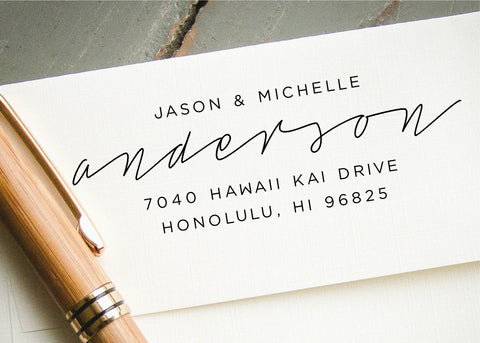 JASON & MICHELLE
anderson
7040 HAWAII KAI DRIVE
HONOLULU, HI 96825